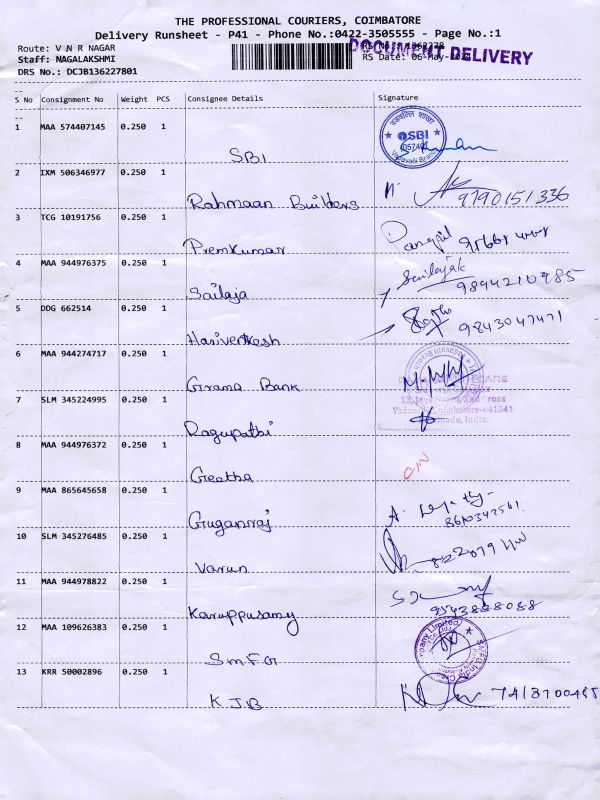 THE PROFESSIONAL COURIERS, COIMBATORE
Delivery Runsheet - P41 - Phone No.:0422-3505555 - Page No.:1
Route: V N R NAGAR
DOCUMENT DELIVERY
Staff: NAGALAKSHMI
RS Date: 06-May-
DRS No.: DCJB136227801
S No Consignment No Weight PCS Consignee Details Signature
1 MAA 574407145 0.250 1 SBI
SBI
2 IXM 506346977 0.250 1 Rahmaan Builders 9790151336
3 TCG 10191756 0.250 1 Premkumar
4 MAA 944976375 0.250 1 Sailaja Sailajak 9894210985
5 DDG 662514 0.250 1 Hariventkesh 9843047471
6 MAA 944274717 0.250 1 Grama Bank
7 SLM 345224995 0.250 1 Ragupathi
8 MAA 944976372 0.250 1 Geetha
9 MAA 865645658 0.250 1 Guganraj 8610342561
10 SLM 345276485 0.250 1 Varun
11 MAA 944978822 0.250 1 Karuppusamy 9543888088
12 MAA 109626383 0.250 1 SMFG
13 KRR 50002896 0.250 1 KJB